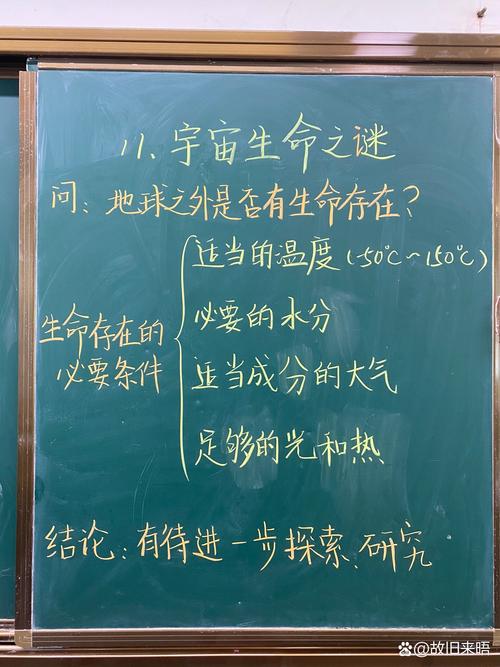 11、宇宙生命之谜
问：地球之外是否有生命存在？
生命存在的
必要条件
适当的温度(-50℃~150℃)
必要的水分
适当成分的大气
足够的光和热
结论：有待进一步探索、研究
@故旧来晤